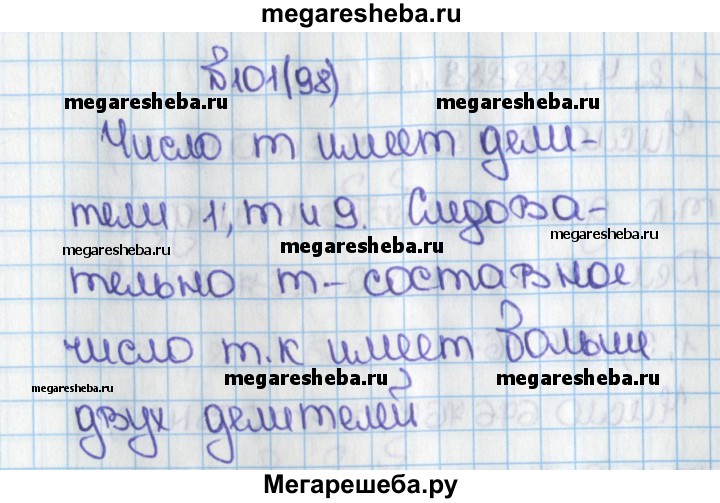 megaresheba.ru
№101(98)
megaresheba.ru megaresheba.ru
Число m имеет дели-
тели 1; m и 9. Следова-
megaresheba.ru megaresheba.ru megaresheba.ru
тельно m - составное
число т.к имеет больше
megaresheba.ru megaresheba.ru megaresheba.ru
двух делителей
Мегарешеба.ру